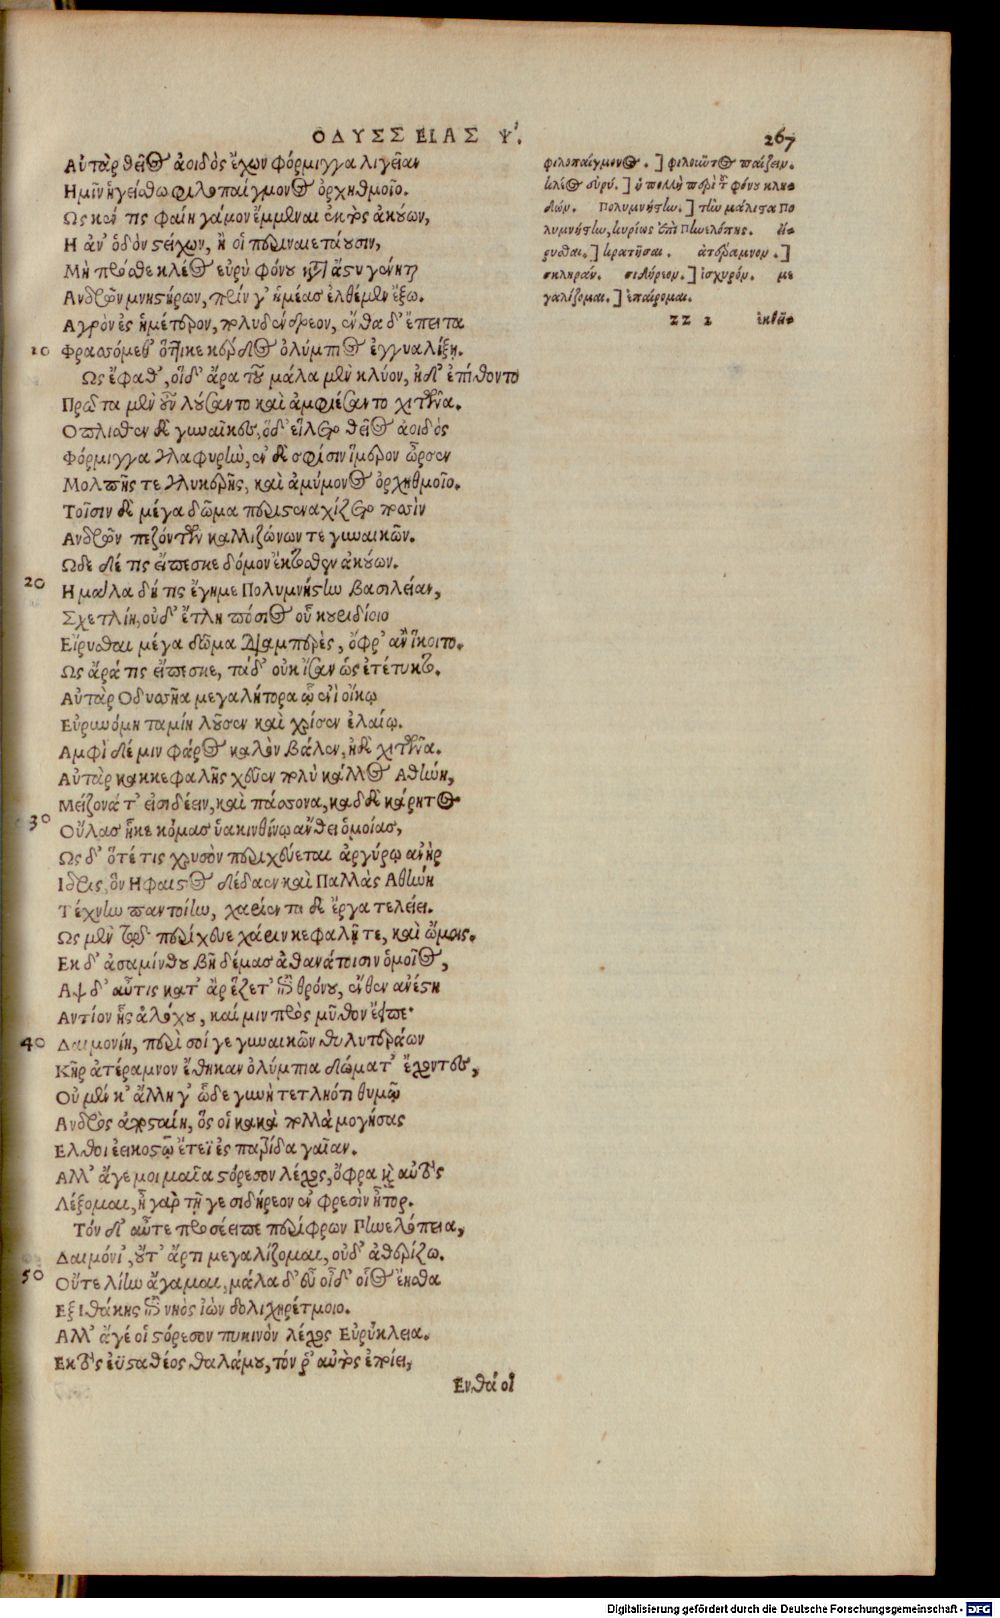 ΟΔΥΣΣΕΙΑΣ Ψ.
267
Αὐτὰρ θεῖος ἀοιδὸς ἔχων φόρμιγγα λιγεῖαν
Ημῖν ἡγείσθω φιλοπαίγμονος ὀρχηθμοῖο.
Ως κέν τις φαίη γάμον ἔμμεναι ἐκτὸς ἀκούων,
Η ἀν' ὁδὸν στείχων, ἢ οἳ περιναιετάουσιν,
Μὴ πρόσθε κλέος εὐρὺ φόνου κατὰ ἄστυ γένηται
Ανδρῶν μνηστήρων, πρίν γ' ἡμέας ἐλθέμεν ἔξω.
Αγρὸν ἐς ἡμέτερον, πολυδένδρεον, ἔνθα δ' ἔπειτα
10 Φρασσόμεθ' ὅττικε κέρδος ὀλύμπιος ἐγγυαλίξῃ.
Ως ἔφαθ', οἱ δ' ἄρα τοῦ μάλα μὲν κλύον, ἠδ' ἐπίθοντο
Πρῶτα μὲν οὖν λούσαντο καὶ ἀμφιέσαντο χιτῶνα.
Οπλισθεν δὲ γυναῖκες, ὅδ' εἵλετο θεῖος ἀοιδὸς
Φόρμιγγα γλαφυρὴν, ἐν δὲ σφίσιν ἵμερον ὦρσεν
Μολπῆς τε γλυκερῆς, καὶ ἀμύμονος ὀρχηθμοῖο.
Τοῖσιν δὲ μέγα δῶμα περιστεναχίζετο ποσὶν
Ανδρῶν πεζόντων καλλιζώνων τε γυναικῶν.
Ωδε δέ τις εἴπεσκε δόμον ἔκτοθεν ἀκούων.
20 Η μάλα δή τις ἔγημε Πολυμνήστην βασιλείαν,
Σχετλίη, οὐδ' ἔτλη πόσιος οὗ κουριδίοιο
Εἴρυσθαι μέγα δῶμα διαμπερὲς, ὄφρ' ἂν ἵκοιτο.
Ως ἄρά τις εἴπεσκε, τάδ' οὐκ ἴσαν ὡς ἐτέτυκτο.
Αὐτὰρ Οδυσσῆα μεγαλήτορα ᾧ ἐνὶ οἴκῳ
Εὐρυνόμη ταμίη λοῦσεν καὶ χρίσεν ἐλαίῳ.
Αμφὶ δέ μιν φάρος καλὸν βάλεν, ἠδὲ χιτῶνα.
Αὐτὰρ κακκεφαλῆς χεῦεν πολὺ κάλλος Αθήνη,
Μείζονά τ' εἰσιδέειν, καὶ πάσσονα, καδδὲ κάρητος
30 Οὔλας ἧκε κόμας ὑακινθίνῳ ἄνθει ὁμοίας,
Ως δ' ὅτέ τις χρυσὸν περιχεύεται ἀργύρῳ ἀνὴρ
Ιδρις, ὃν Ηφαιστος δέδαεν καὶ Παλλὰς Αθήνη
Τέχνην παντοίην, χαρίεντα δὲ ἔργα τελείει.
Ως μὲν τῷ περίχευε χάριν κεφαλῇ τε, καὶ ὤμοις.
Εκ δ' ἀσαμίνθου βῆ δέμας ἀθανάτοισιν ὁμοῖος,
Αψ δ' αὖτις κατ' ἄρ ἕζετ' ἐπὶ θρόνου, ἔνθεν ἀνέστη
Αντίον ἧς ἀλόχου, καί μιν πρὸς μῦθον ἔειπε·
40 Δαιμονίη, περὶ σοί γε γυναικῶν θηλυτεράων
Κῆρ ἀτέραμνον ἔθηκαν ὀλύμπια δώματ' ἔχοντες,
Οὐ μέν κ' ἄλλη γ' ὧδε γυνὴ τετληότι θυμῷ
Ανδρὸς ἀφεσταίη, ὅς οἱ κακὰ πολλὰ μογήσας
Ελθοι ἐεικοστῷ ἔτεϊ ἐς πατρίδα γαῖαν.
Αλλ' ἄγε μοι μαῖα στόρεσον λέχος, ὄφρα καὶ αὐτὸς
Λέξομαι, ἦ γὰρ τῇ γε σιδήρεον ἐν φρεσὶν ἦτορ.
Τόν δ' αὖτε προσέειπε περίφρων Πηνελόπεια,
Δαιμόνι', οὔτ' ἄρτι μεγαλίζομαι, οὐδ' ἀθερίζω.
50 Οὔτε λίην ἄγαμαι, μάλα δ' εὖ οἶδ' οἷος ἔησθα
Εξ Ιθάκης ἐπὶ νηὸς ἰὼν δολιχηρέτμοιο.
Αλλ' ἄγέ οἱ στόρεσον πυκινὸν λέχος Εὐρύκλεια.
Εκτὸς ἐϋσταθέος θαλάμου, τόν ῥ' αὐτὸς ἐποίει,
Ενθά οἱ
φιλοπαίγμονος.] φιλοῦντος παίζειν.
κλέος εὐρύ.] ἡ πολλὴ περὶ τοῦ φόνου κλη-
δών. Πολυμνήστην.] τὴν μάλιστα πο
λυμνήστην, κυρίως ἐπὶ Πηνελόπης. εἴ-
ρυσθαι.] κρατῆσαι. ἀτέραμνον.]
σκληράν. σιδήρεον.] ἰσχυρόν. με
γαλίζομαι.] ἐπαίρομαι.
ZZ 2 ἐκθεῖ-
Digitalisierung gefördert durch die Deutsche Forschungsgemeinschaft - DFG